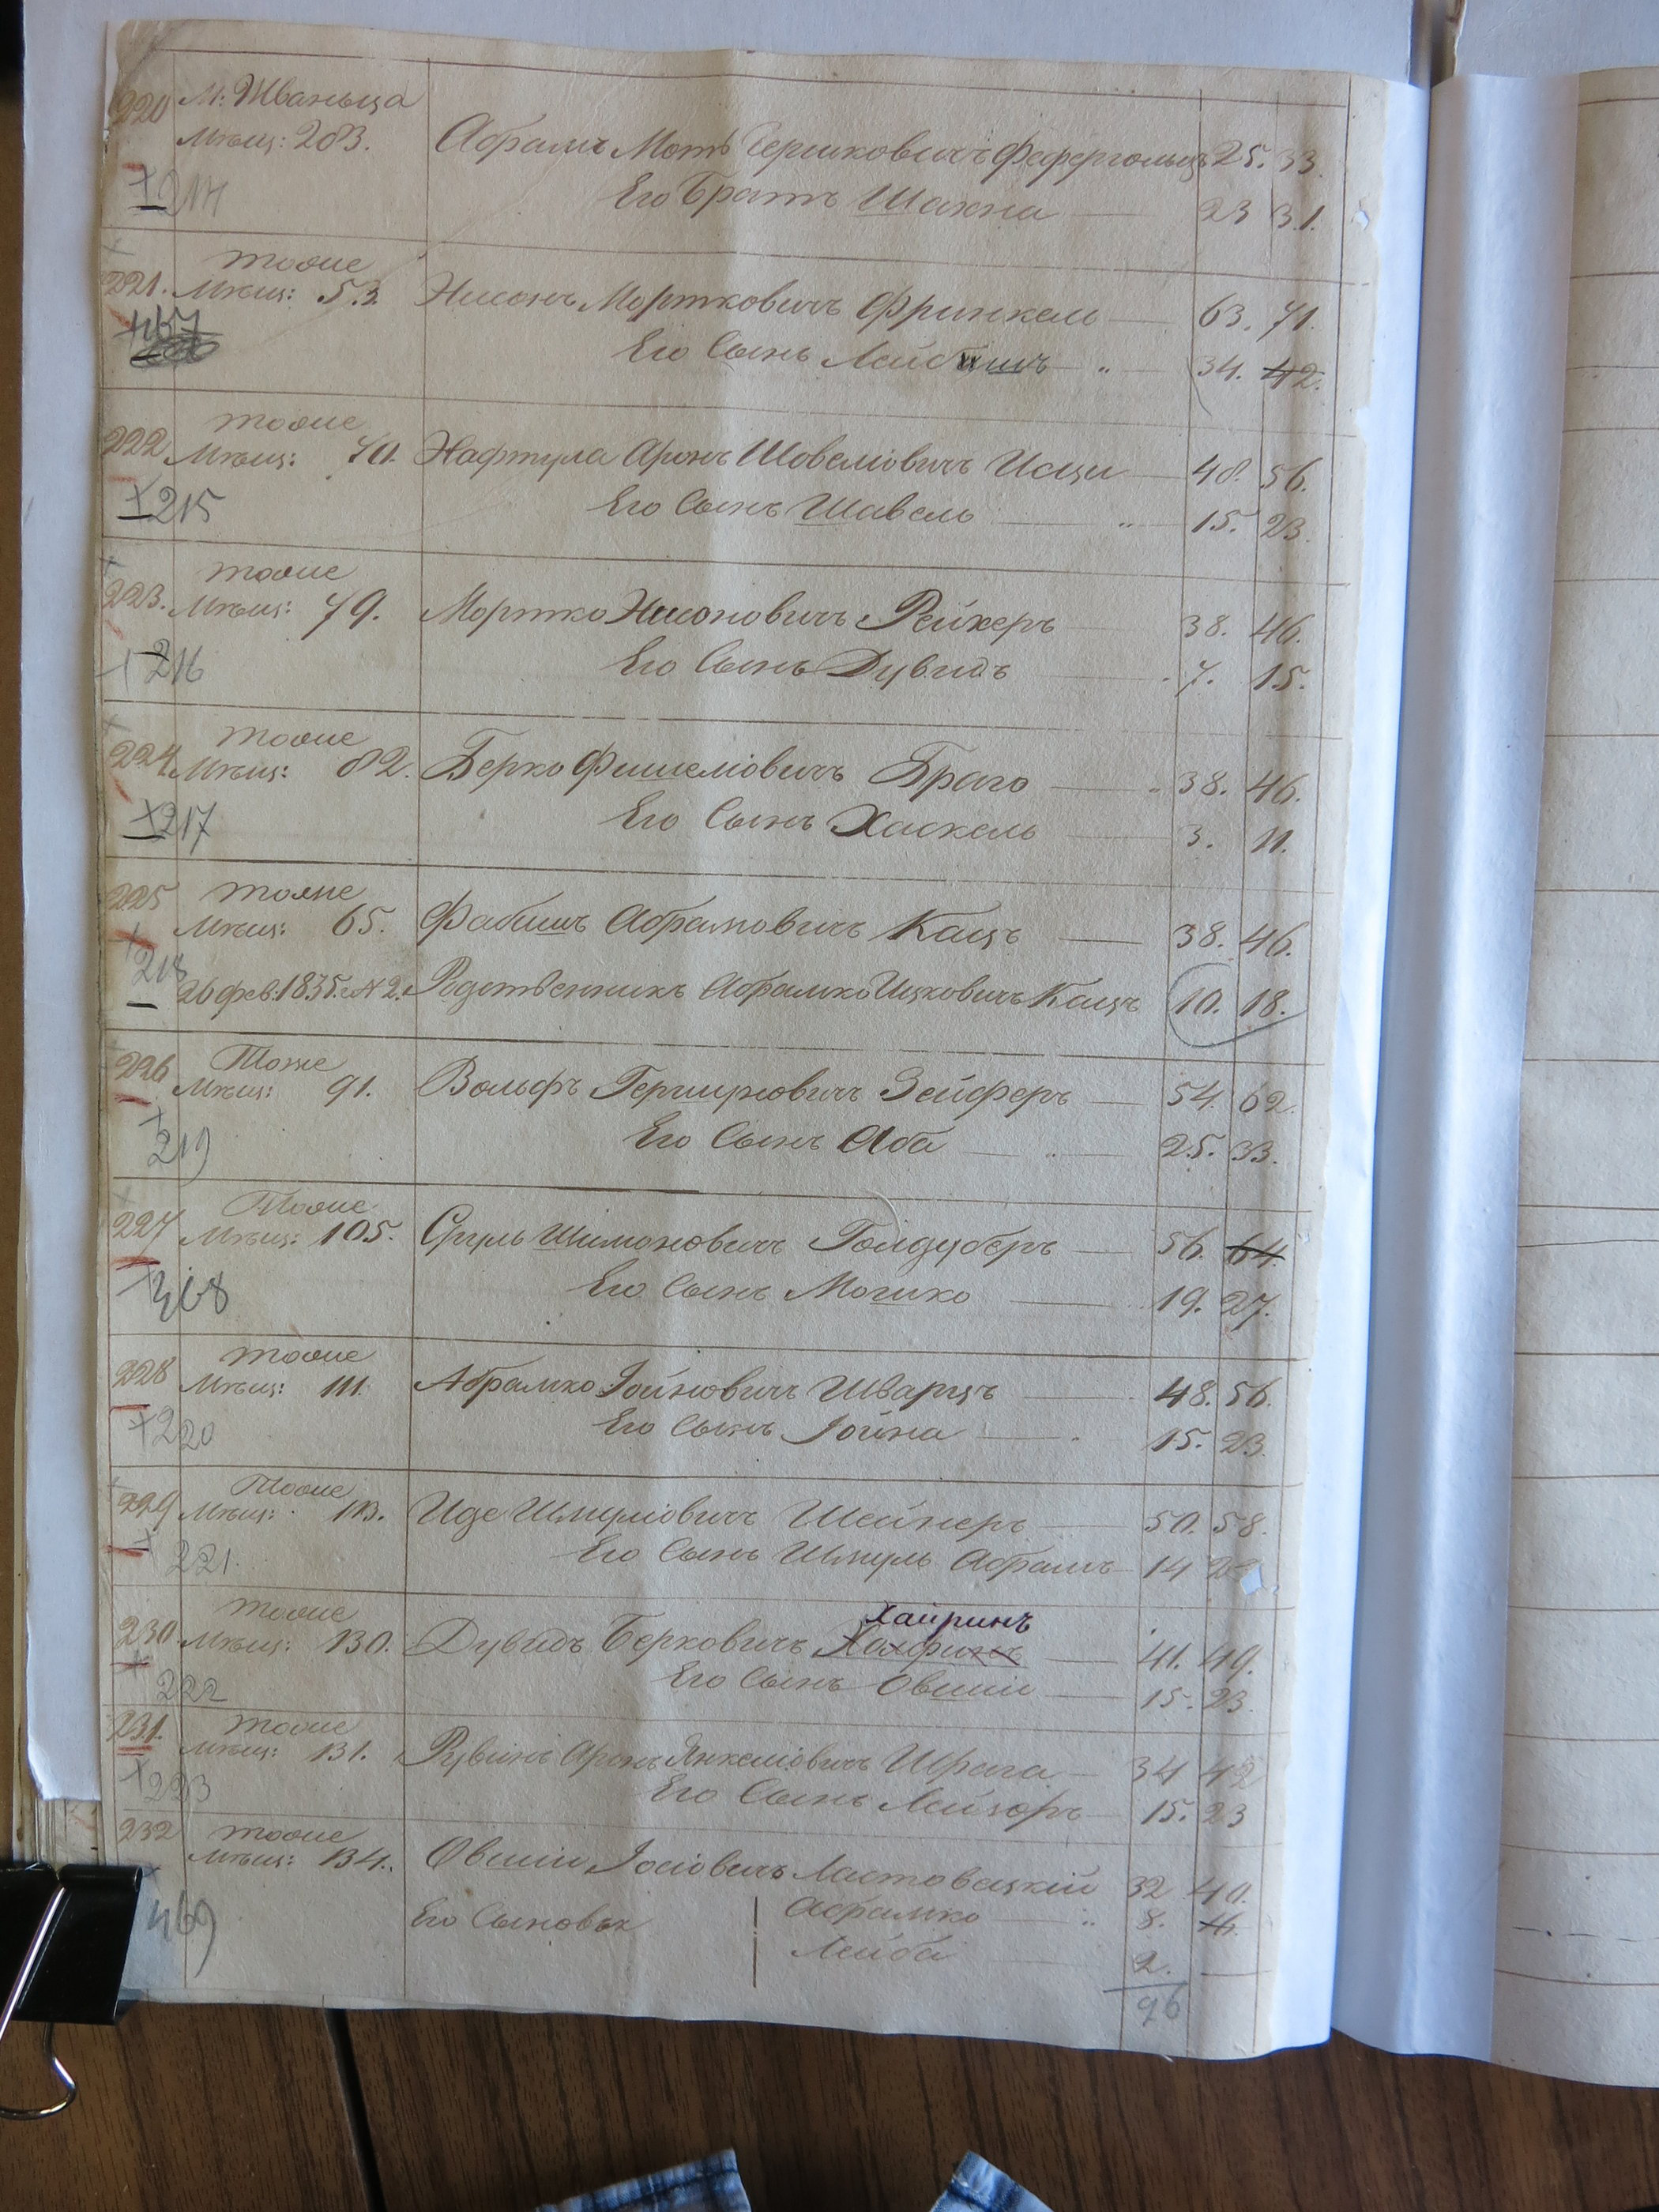 220 М: Жваньца
Мѣщ: 203. Абрамъ Мотъ Гершковичъ Фефергольцъ 25. 33.
+214 Его Братъ Шахна 23 31.
тоже
221. Мѣщ: 53. Нисонъ Мортковичъ Фринкель 63. 71.
Его Сынъ Лейбишъ 34. 42.
тоже
222 Мѣщ: 70. Нафтула Аронъ Шовеліовичъ 48. 56.
+215 Его Сынъ Шавель 15. 23.
тоже
223. Мѣщ: 79. Мортко Нисоновичъ Рейхеръ 38. 46.
+216 Его Сынъ Дувидъ 7. 15.
тоже
224 Мѣщ: 82. Берко Фишеліовичъ Браго 38. 46.
+217 Его Сынъ Хаскель 3. 11.
225 тоже
Мѣщ: 65. Фабишъ Абрамовичъ Кацъ 38. 46.
218
26 фев: 1835. № 2. Родственникъ Абрамко Ицковичъ Кацъ 10. 18.
226 Тоже
Мѣщ: 91. Вольфъ Гершковичъ Зейферъ 54. 62.
+219 Его Сынъ Аба 25. 33.
Тоже
227 Мѣщ: 105. Сруль Шимоновичъ Голдуберъ 56. 64.
+368 Его Сынъ Мошко 19. 27.
228 тоже
Мѣщ: 111. Абрамко Іойновичъ Шварцъ 48. 56.
+220 Его Сынъ Іойна 15. 23.
Тоже
229 Мѣщ: 113. Иде Шмуліовичъ Шейнеръ 50. 58.
+221. Его Сынъ Шмуль Абрамъ 14
тоже Хайринъ
230. Мѣщ: 130. Дувидъ Берковичъ 41. 49.
+222 Его Сынъ Овшій 15. 23.
231. тоже
Мѣщ: 131. Рувинъ Аронъ Янкеліовичъ Шрага 34 42
+223 Его Сынъ Лейзоръ 15. 23
232 тоже
Мѣщ: 134. Овшій Іосіовичъ Ластовецкій 32 40.
469 Его Сыновья Абрамко 8. 16.
Лейба 2.
96